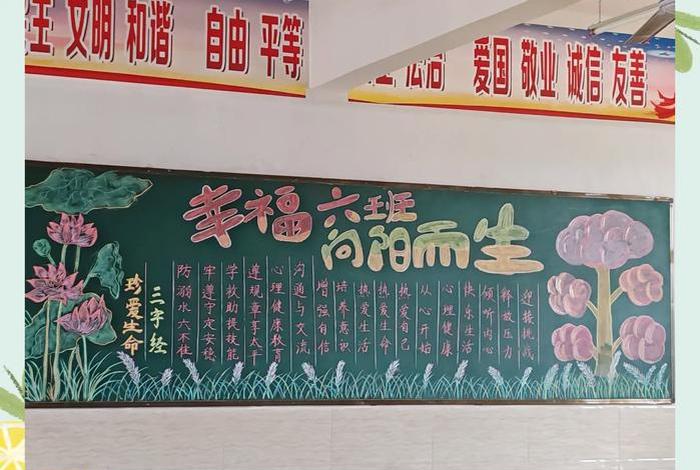 主 文明 和谐 自由 平等
法治 爱国 敬业 诚信 友善
幸福六班
向阳而生
珍爱生命
三字经
防溺水六不准
牢遵守定安稳
学救助提技能
遵规章享太平
心理健康教育
沟通与交流
增强自信
培养意识
热爱生活
热爱生命
热爱自己
从心开始
心理健康
快乐生活
倾听内心
释放压力
迎接挑战